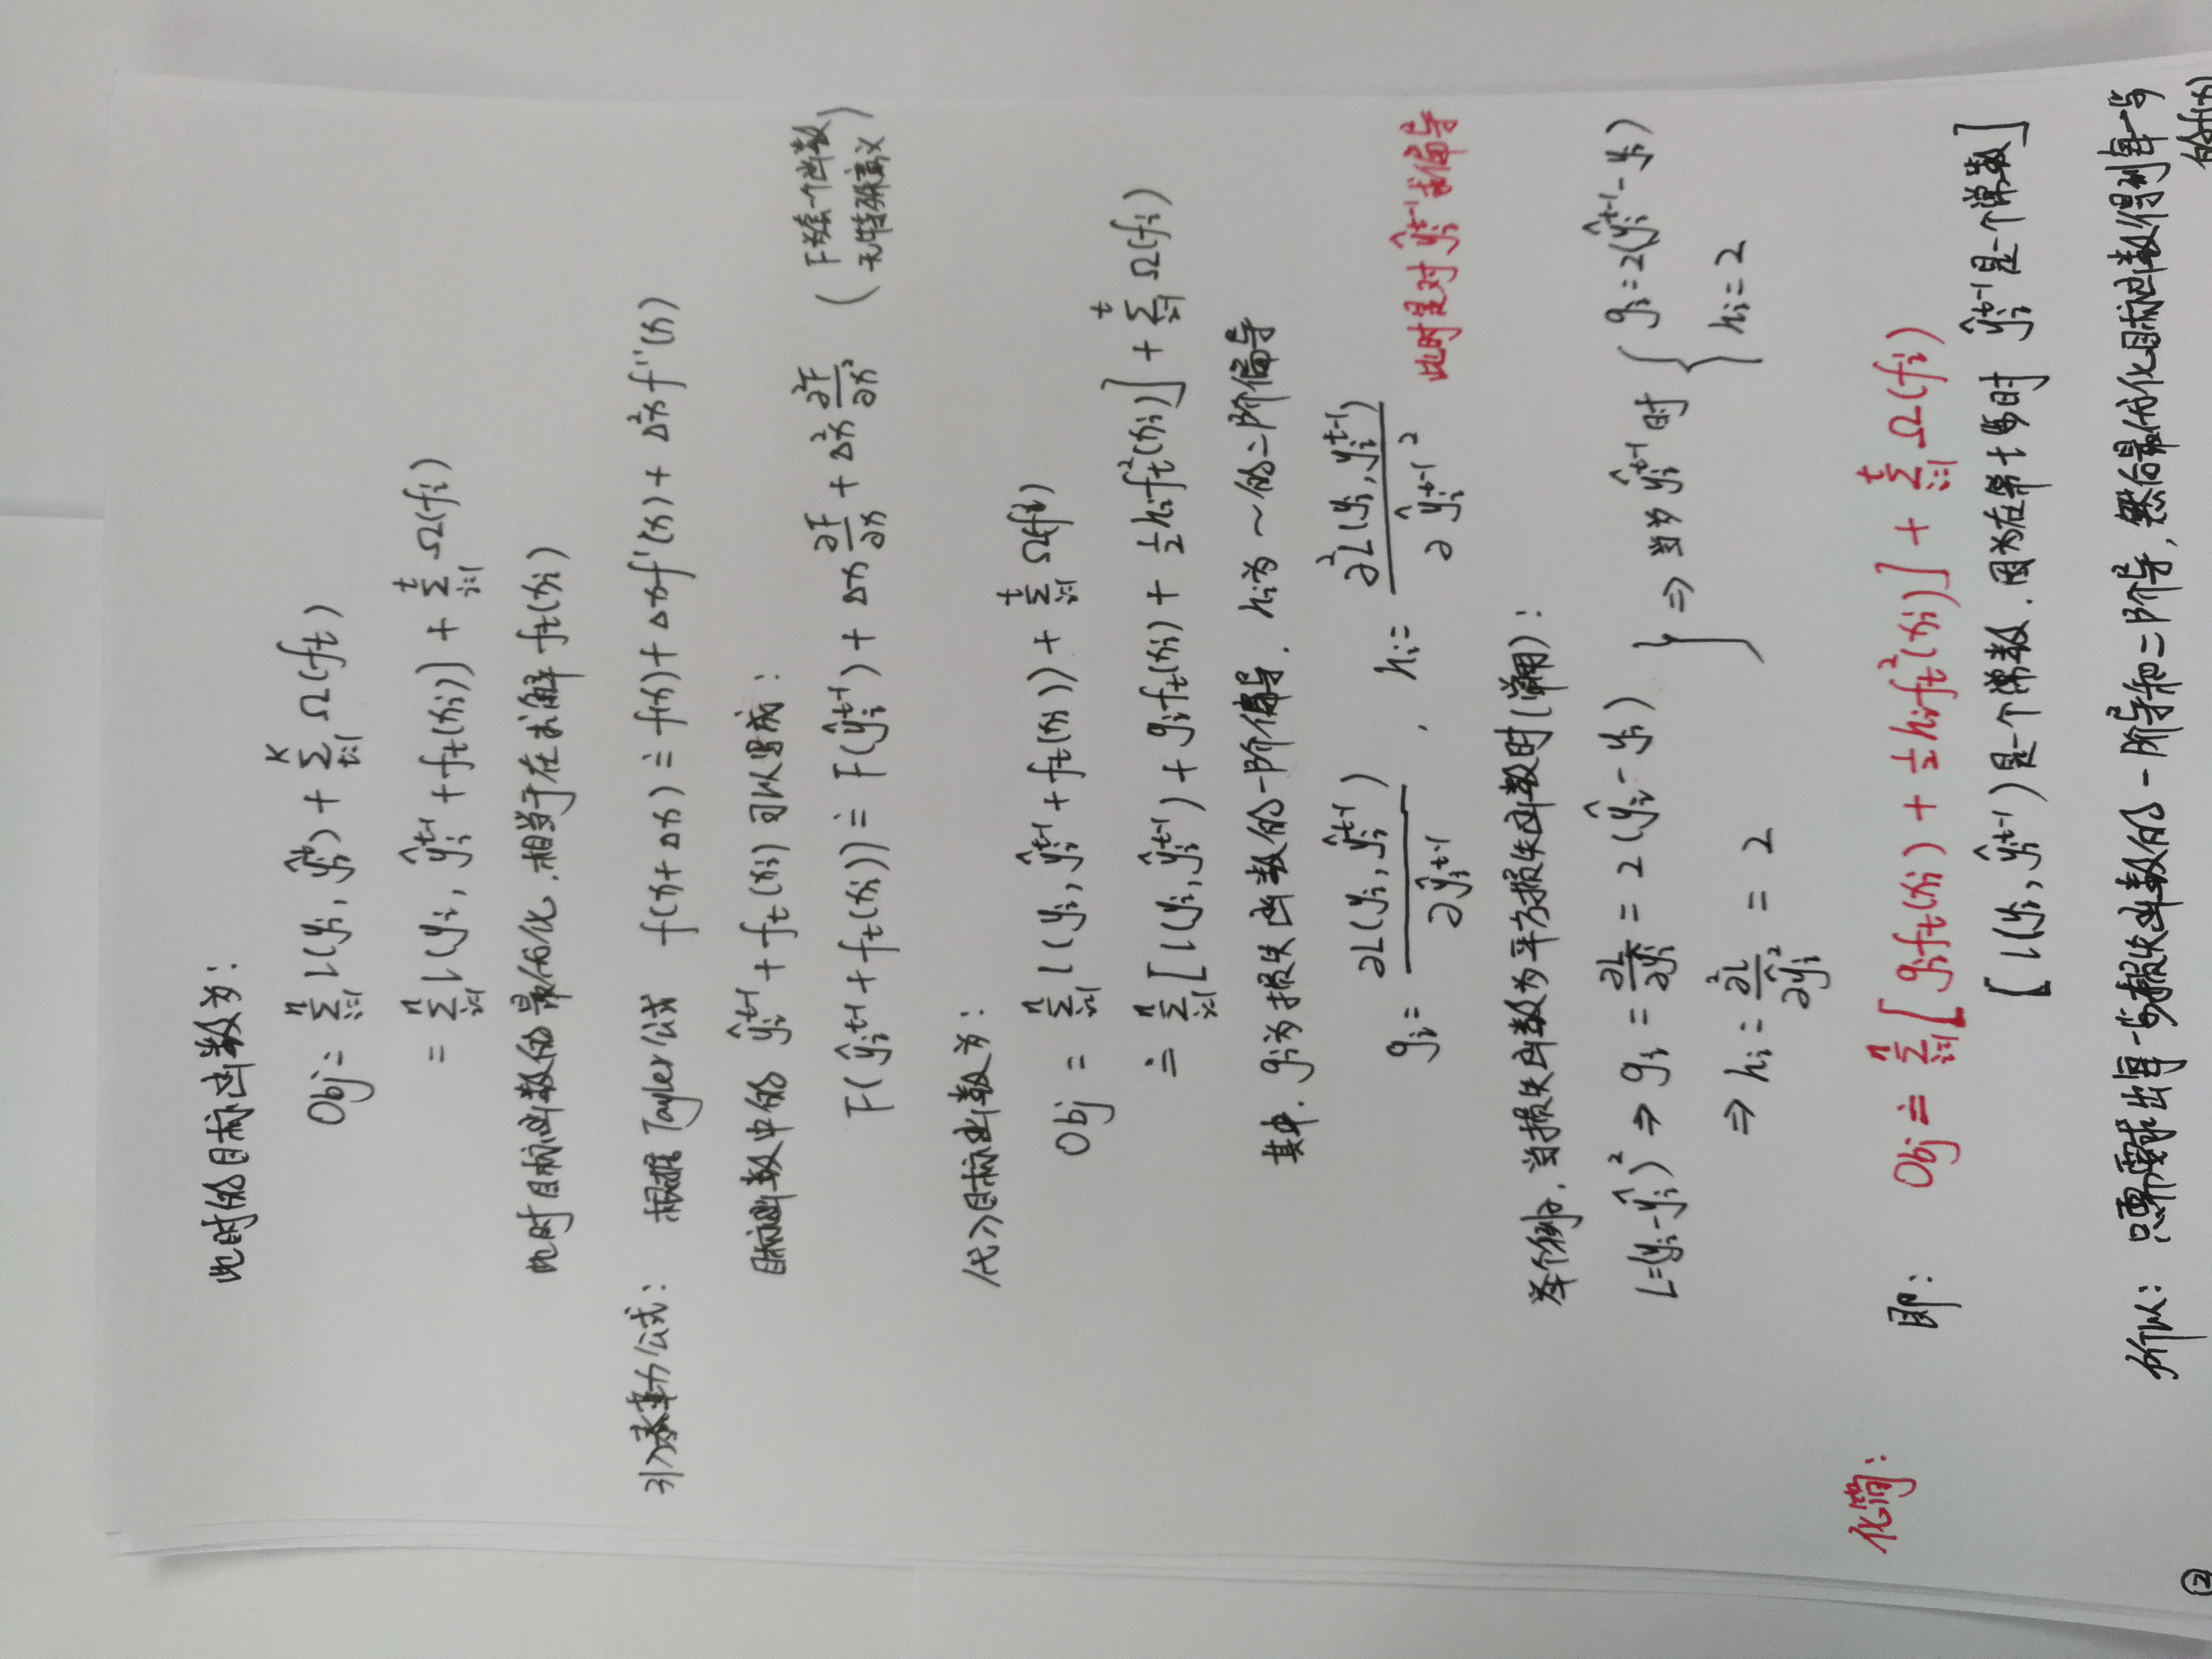 此时的目标函数为:
Obj = ∑_{i=1}^{n} l(y_i, ŷ_i^t) + ∑_{t=1}^{K} Ω(f_t)
= ∑_{i=1}^{n} l(y_i, ŷ_i^{t-1} + f_t(x_i)) + ∑_{i=1}^{t} Ω(f_i)
此时目标函数的最优化,相当于在求解 f_t(x_i)
引入泰勒公式: 根据Tayler公式 f(x+Δx) ≐ f(x) + Δx f'(x) + Δ²x f''(x)
目标函数中的 ŷ_i^{t-1} + f_t(x_i) 可以写成:
F(ŷ_i^{t-1} + f_t(x_i)) ≐ F(ŷ_i^{t-1}) + Δx ∂F/∂x + Δ²x ∂²F/∂x² (F为套一个函数 无特殊意义)
代入目标函数为:
Obj = ∑_{i=1}^{n} l(y_i, ŷ_i^{t-1} + f_t(x_i)) + ∑_{i=1}^{t} Ω(f_i)
≐ ∑_{i=1}^{n} [l(y_i, ŷ_i^{t-1}) + g_i f_t(x_i) + ½ h_i f_t²(x_i)] + ∑_{i=1}^{t} Ω(f_i)
其中, g_i为损失函数的一阶偏导, h_i为~的二阶偏导
g_i = ∂L(y_i, ŷ_i^{t-1}) / ∂ŷ_i^{t-1} , h_i = ∂²L(y_i, y_i^{t-1}) / ∂ŷ_i^{t-1 2} 此时是对 ŷ_i^{t-1} 求偏导
举个例子,当损失函数为平方损失函数时(常用):
L=(y_i-ŷ_i)² ⇒ g_i = ∂L/∂ŷ_i = 2(ŷ_i - y_i) } ⇒ 当为 ŷ_i^{t-1} 时 { g_i = 2(ŷ_i^{t-1} - y_i)
⇒ h_i = ∂²L/∂ŷ_i² = 2 h_i = 2
化简:
即: Obj ≐ ∑_{i=1}^{n} [g_i f_t(x_i) + ½ h_i f_t²(x_i)] + ∑_{i=1}^{t} Ω(f_i)
[l(y_i, ŷ_i^{t-1})是一个常数,因为在第t步时 ŷ_i^{t-1}是一个常数]
所以: 只需要求出每一步损失函数的一阶导和二阶导,然后最优化目标函数得到每一步
的f(x)
②